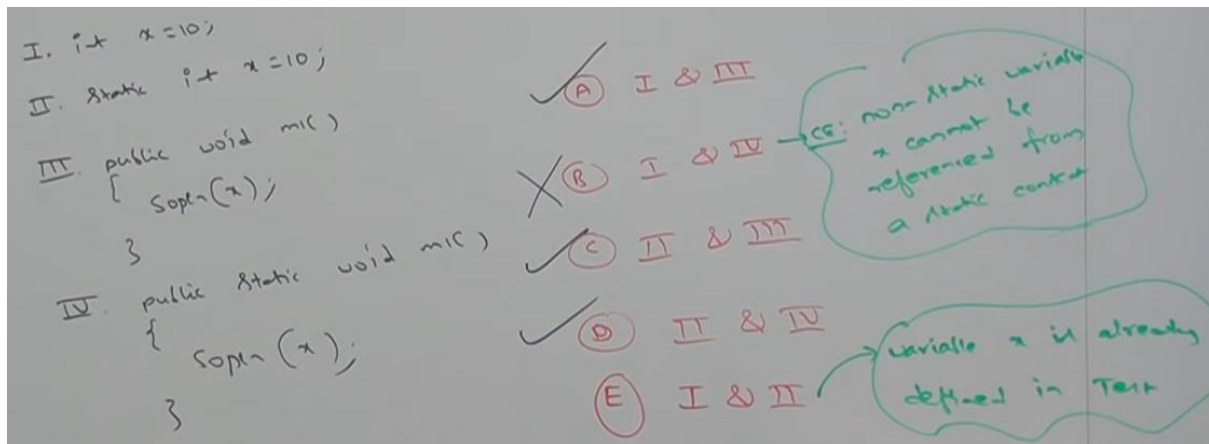 I. int x=10;
II. static int x=10;
III. public void m1( )
{
sopln(x);
}
IV. public static void m1( )
{
sopln(x);
}
A I & III
B I & IV
C II & III
D II & IV
E I & II
CE: non-static variable
x cannot be
referenced from
a static context
variable x is already
defined in Test